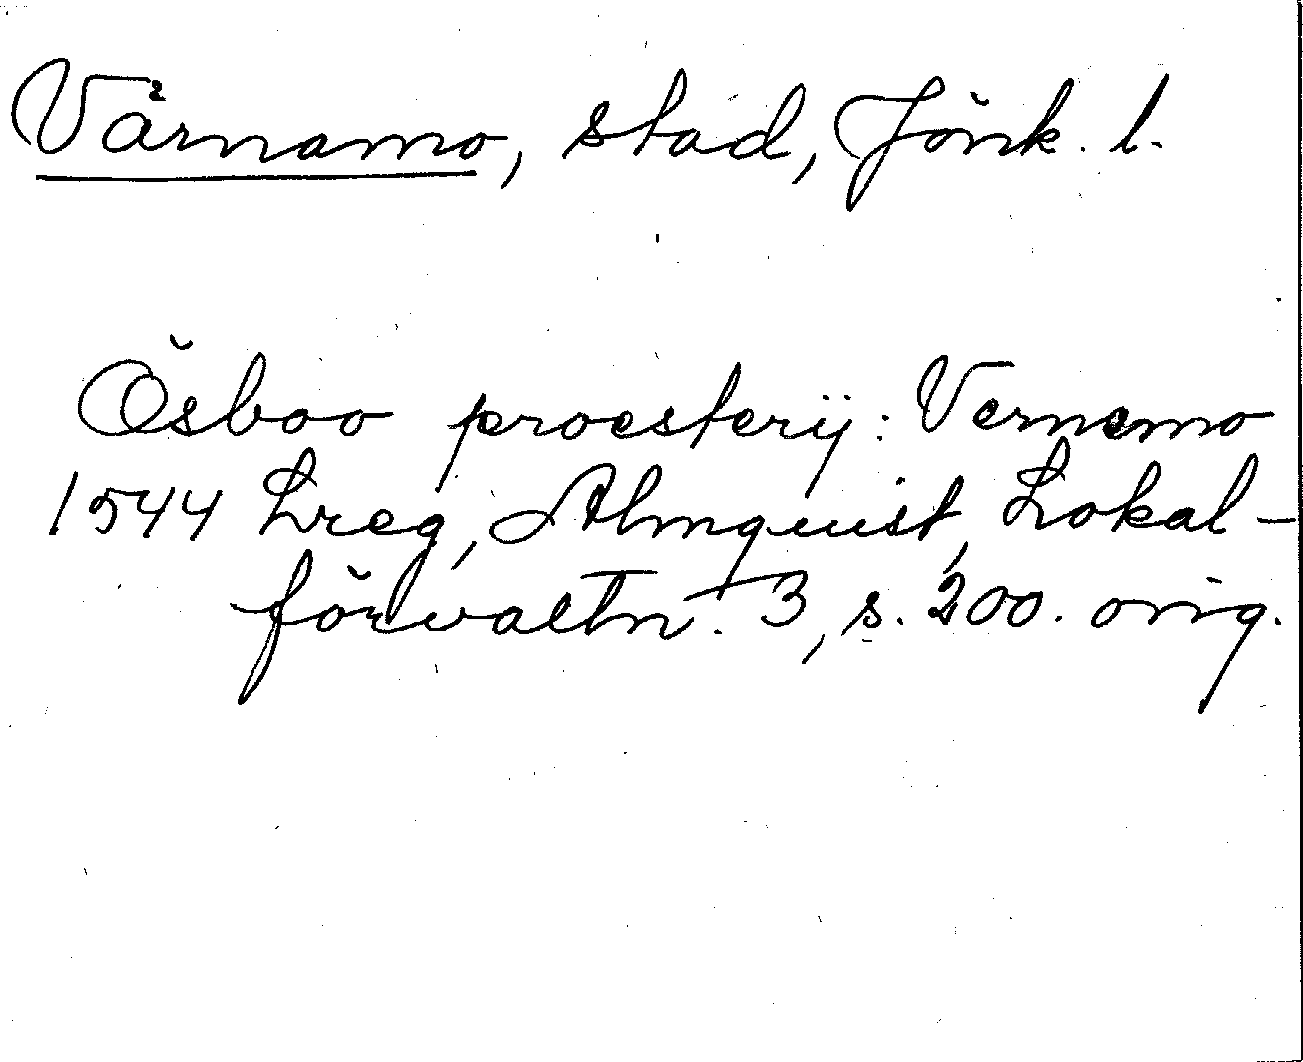 Värnamo, stad, Jönk. l.
Ösboo proesterij: Vernemo
1544 Lreg, Almquist, Lokal-
förvaltn. 3, s. 200. orig.